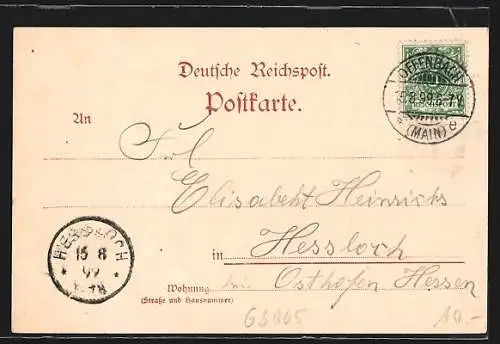 Deutsche Reichspost.
Postkarte.
An
Frl.
Elisabeth Heinrichs
in Hessloch
Wohnung bei Osthofen Hessen
(Straße und Hausnummer)
OFFENBACH
15.8.99.6-7N
(MAIN)
HESSLOCH
15 8
99
GS005
10.-